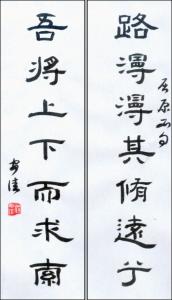 路漫漫其脩遠兮
屈原
吾將上下而求索